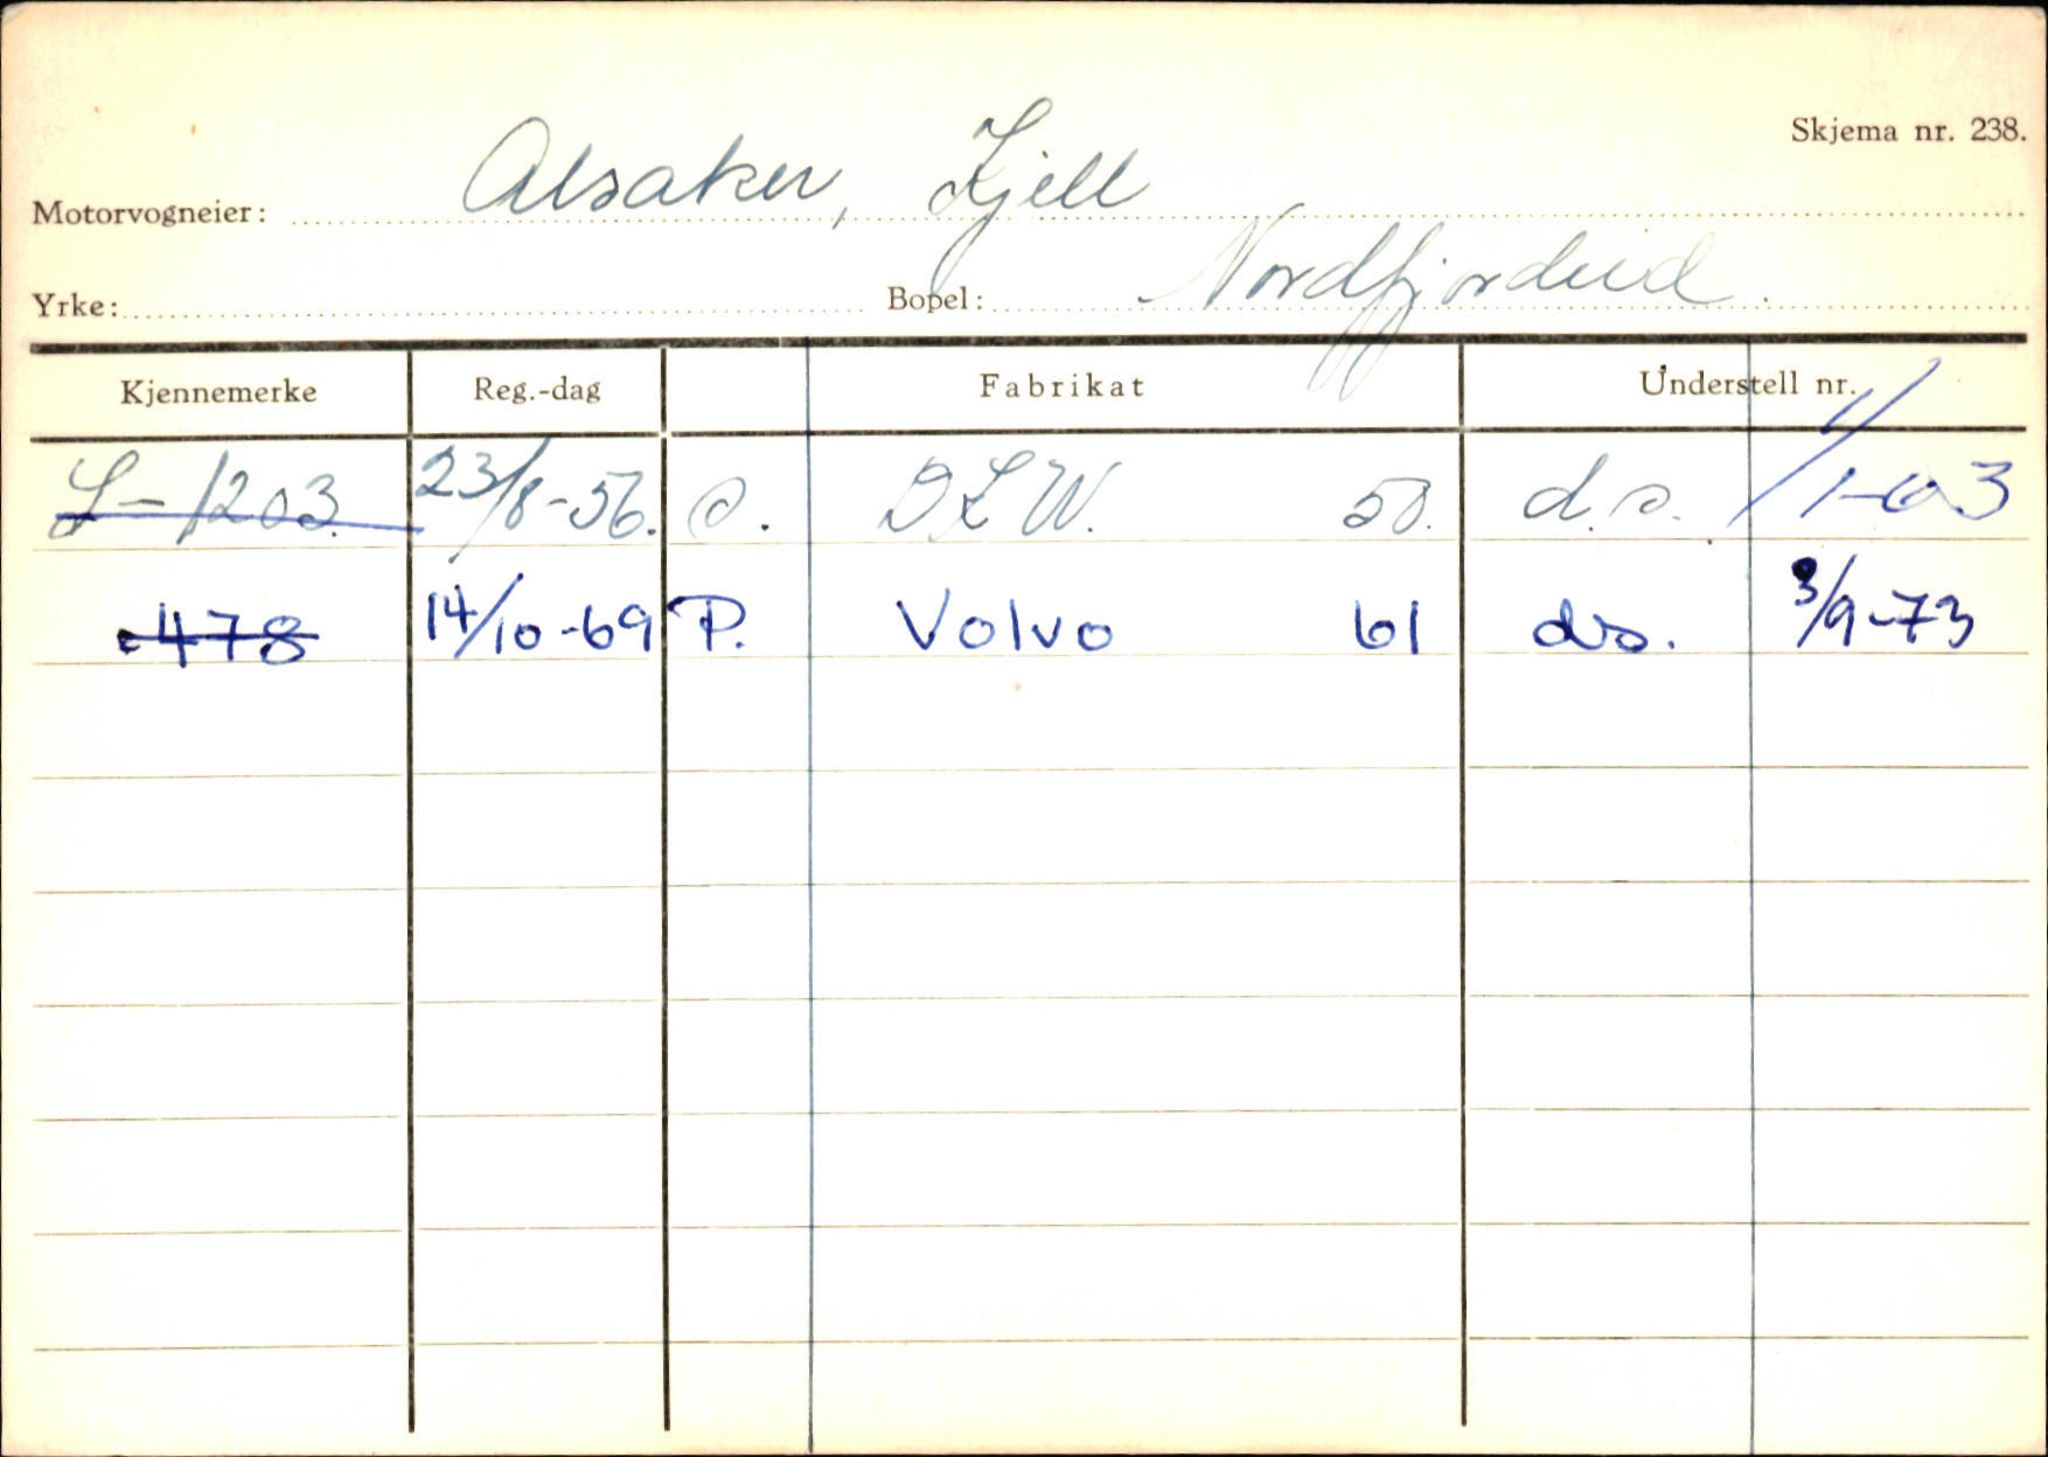 Skjema nr. 238.
Motorvogneier: Alsaker, Kjell
Yrke: Bopel: Nordfjordeid.
Kjennemerke Reg.-dag Fabrikat Understell nr.
S-1203. 23/8-56. D.K.W. 50. d.s. 1/1-63
478 14/10-69 P. Volvo 61 ds. 3/9-73